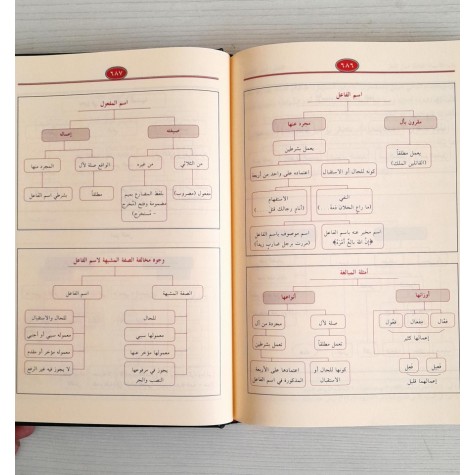 ٦٨٦
اسم الفاعل
مقرون بأل
مجرد عنها
يعمل مطلقاً
(القاتلين الملك)
يعمل بشرطين
كونه للحال أو الاستقبال
اعتماده على واحد من أربعة
النفي
الاستفهام
اسم مخبر عنه باسم الفاعل
اسم موصوف باسم الفاعل
(مررت برجل ضارب زيداً)
أمثلة المبالغة
أوزانها
أنواعها
فعّال
مِفعال
فعُول
إعمالها كثير
فعيل
فعِل
إعمالهما قليل
صلة لأل
مجردة من أل
تعمل مطلقاً
تعمل بشرطين
كونها للحال أو
الاستقبال
اعتمادها على الأربعة
المذكورة في اسم الفاعل
٦٨٧
اسم المفعول
صيغته
إعماله
من الثلاثي
من غيره
الواقع صلة لأل
المجرد منها
مفعول (مضروب)
بلفظ المضارع بميم
مضمومة وفتح
مطلقاً
بشرطي اسم الفاعل
وجوه مخالفة الصفة المشبهة لاسم الفاعل
الصفة المشبهة
اسم الفاعل
للحال
للحال والاستقبال
معمولها سببي
معموله سببي أو أجنبي
معمولها مؤخر عنها
معموله مؤخر أو مقدم
يجوز في مرفوعها
النصب والجر
لا يجوز فيه غير الرفع